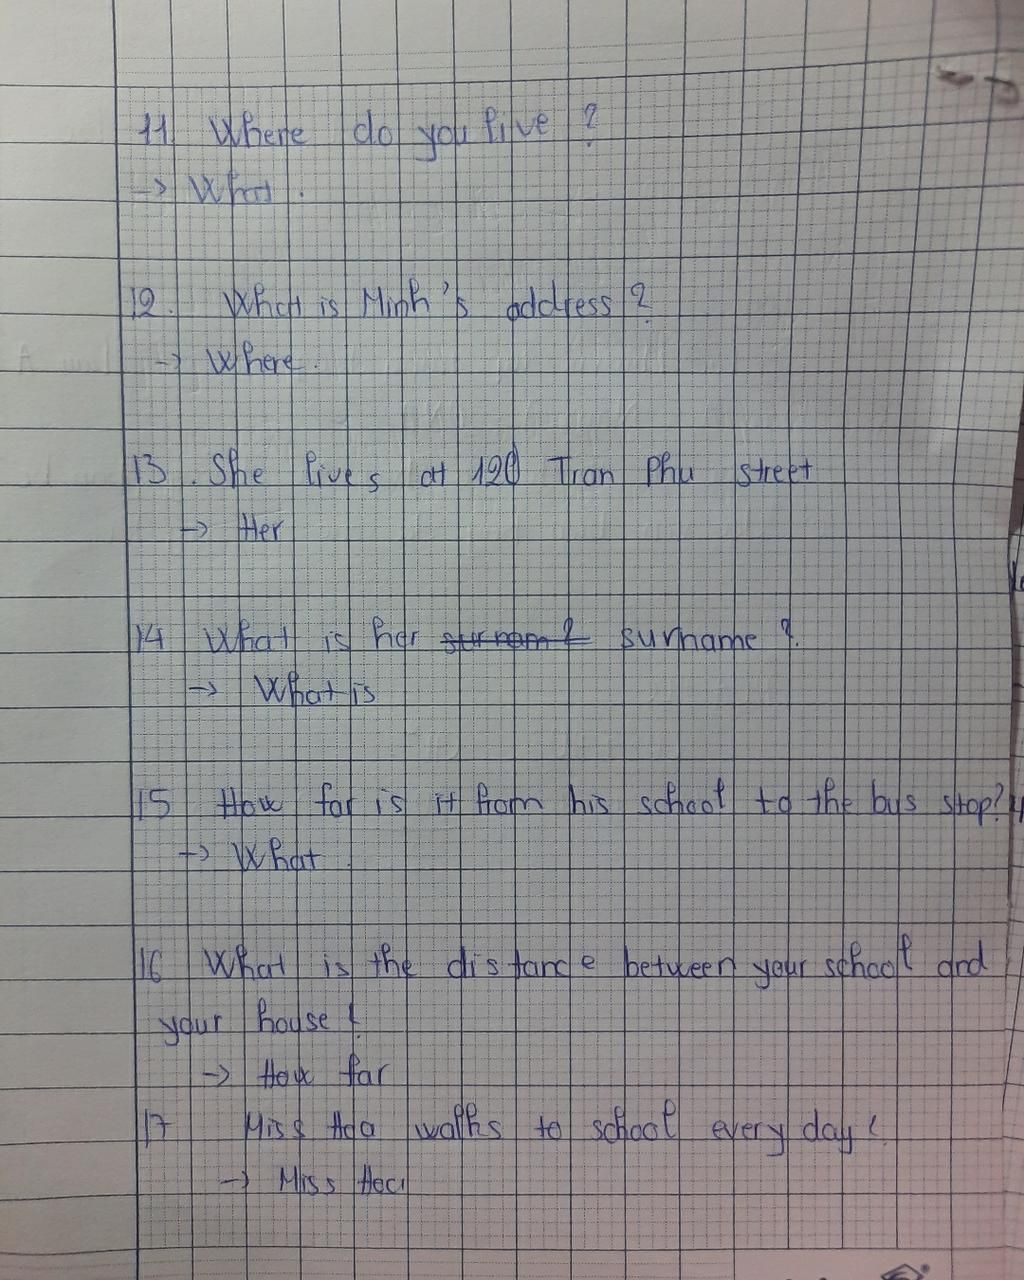 11 Where do you live ?
→ What .
12. What is Minh's address ?
→ Where .
13 . She lives at 120 Tran Phu street
→ Her
14 What is her surnam ? surname ?
→ What is
15 How far is it from his school to the bus stop?
→ What .
16 What is the distance between your school and
your house ?
→ How far
17 Miss Hoa walks to school every day
→ Miss Hoa